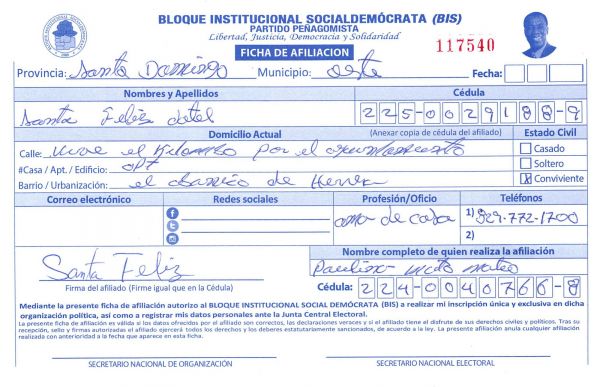 BLOQUE INSTITUCIONAL SOCIALDEMÓCRATA (BIS)
PARTIDO PEÑAGOMISTA
Libertad, Justicia, Democracia y Solidaridad
FICHA DE AFILIACION
117540
Provincia: Santo Domingo Municipio: oeste Fecha:
Nombres y Apellidos Cédula
Santa Feliz 225-0029188-9
Domicilio Actual (Anexar copia de cédula del afiliado) Estado Civil
Calle: por el ayuntamiento Casado
#Casa / Apt. / Edificio: apt Soltero
Barrio / Urbanización: el de X Conviviente
Correo electrónico Redes sociales Profesión/Oficio Teléfonos
ama de casa 1) 829-772-1700
2)
Nombre completo de quien realiza la afiliación
Santa Feliz Paulino mateo
Firma del afiliado (Firme igual que en la Cédula) Cédula: 224-0040766-8
Mediante la presente ficha de afiliación autorizo al BLOQUE INSTITUCIONAL SOCIAL DEMÓCRATA (BIS) a realizar mi inscripción única y exclusiva en dicha
organización política, así como a registrar mis datos personales ante la Junta Central Electoral.
La presente ficha de afiliación es válida si los datos ofrecidos por el afiliado son correctos, las declaraciones veraces y si el afiliado tiene el disfrute de sus derechos civiles y políticos. Tras su
recepción, sello y firmas autorizan al afiliado ejercer todos los derechos y los deberes estatutariamente sancionados, de acuerdo a la ley. La presente afiliación anula cualquier afiliación
realizada con anterioridad a la fecha que aparece en esta ficha.
SECRETARIO NACIONAL DE ORGANIZACIÓN SECRETARIO NACIONAL ELECTORAL